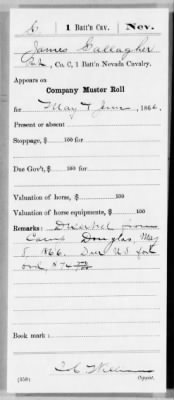 G | 1 Batt'n Cav. | Nev.
James Gallagher
Pvt., Co. C, 1 Batt'n Nevada Cavalry.
Appears on
Company Muster Roll
for May & June, 1866.
Present or absent
Stoppage, $ 100 for
Due Gov't, $ 100 for
Valuation of horse, $ 100
Valuation of horse equipments, $ 100
Remarks: Deserted from
Camp Douglas, May
5, 1866. Due US for
ord,
Book mark:
(358)
Copyist.